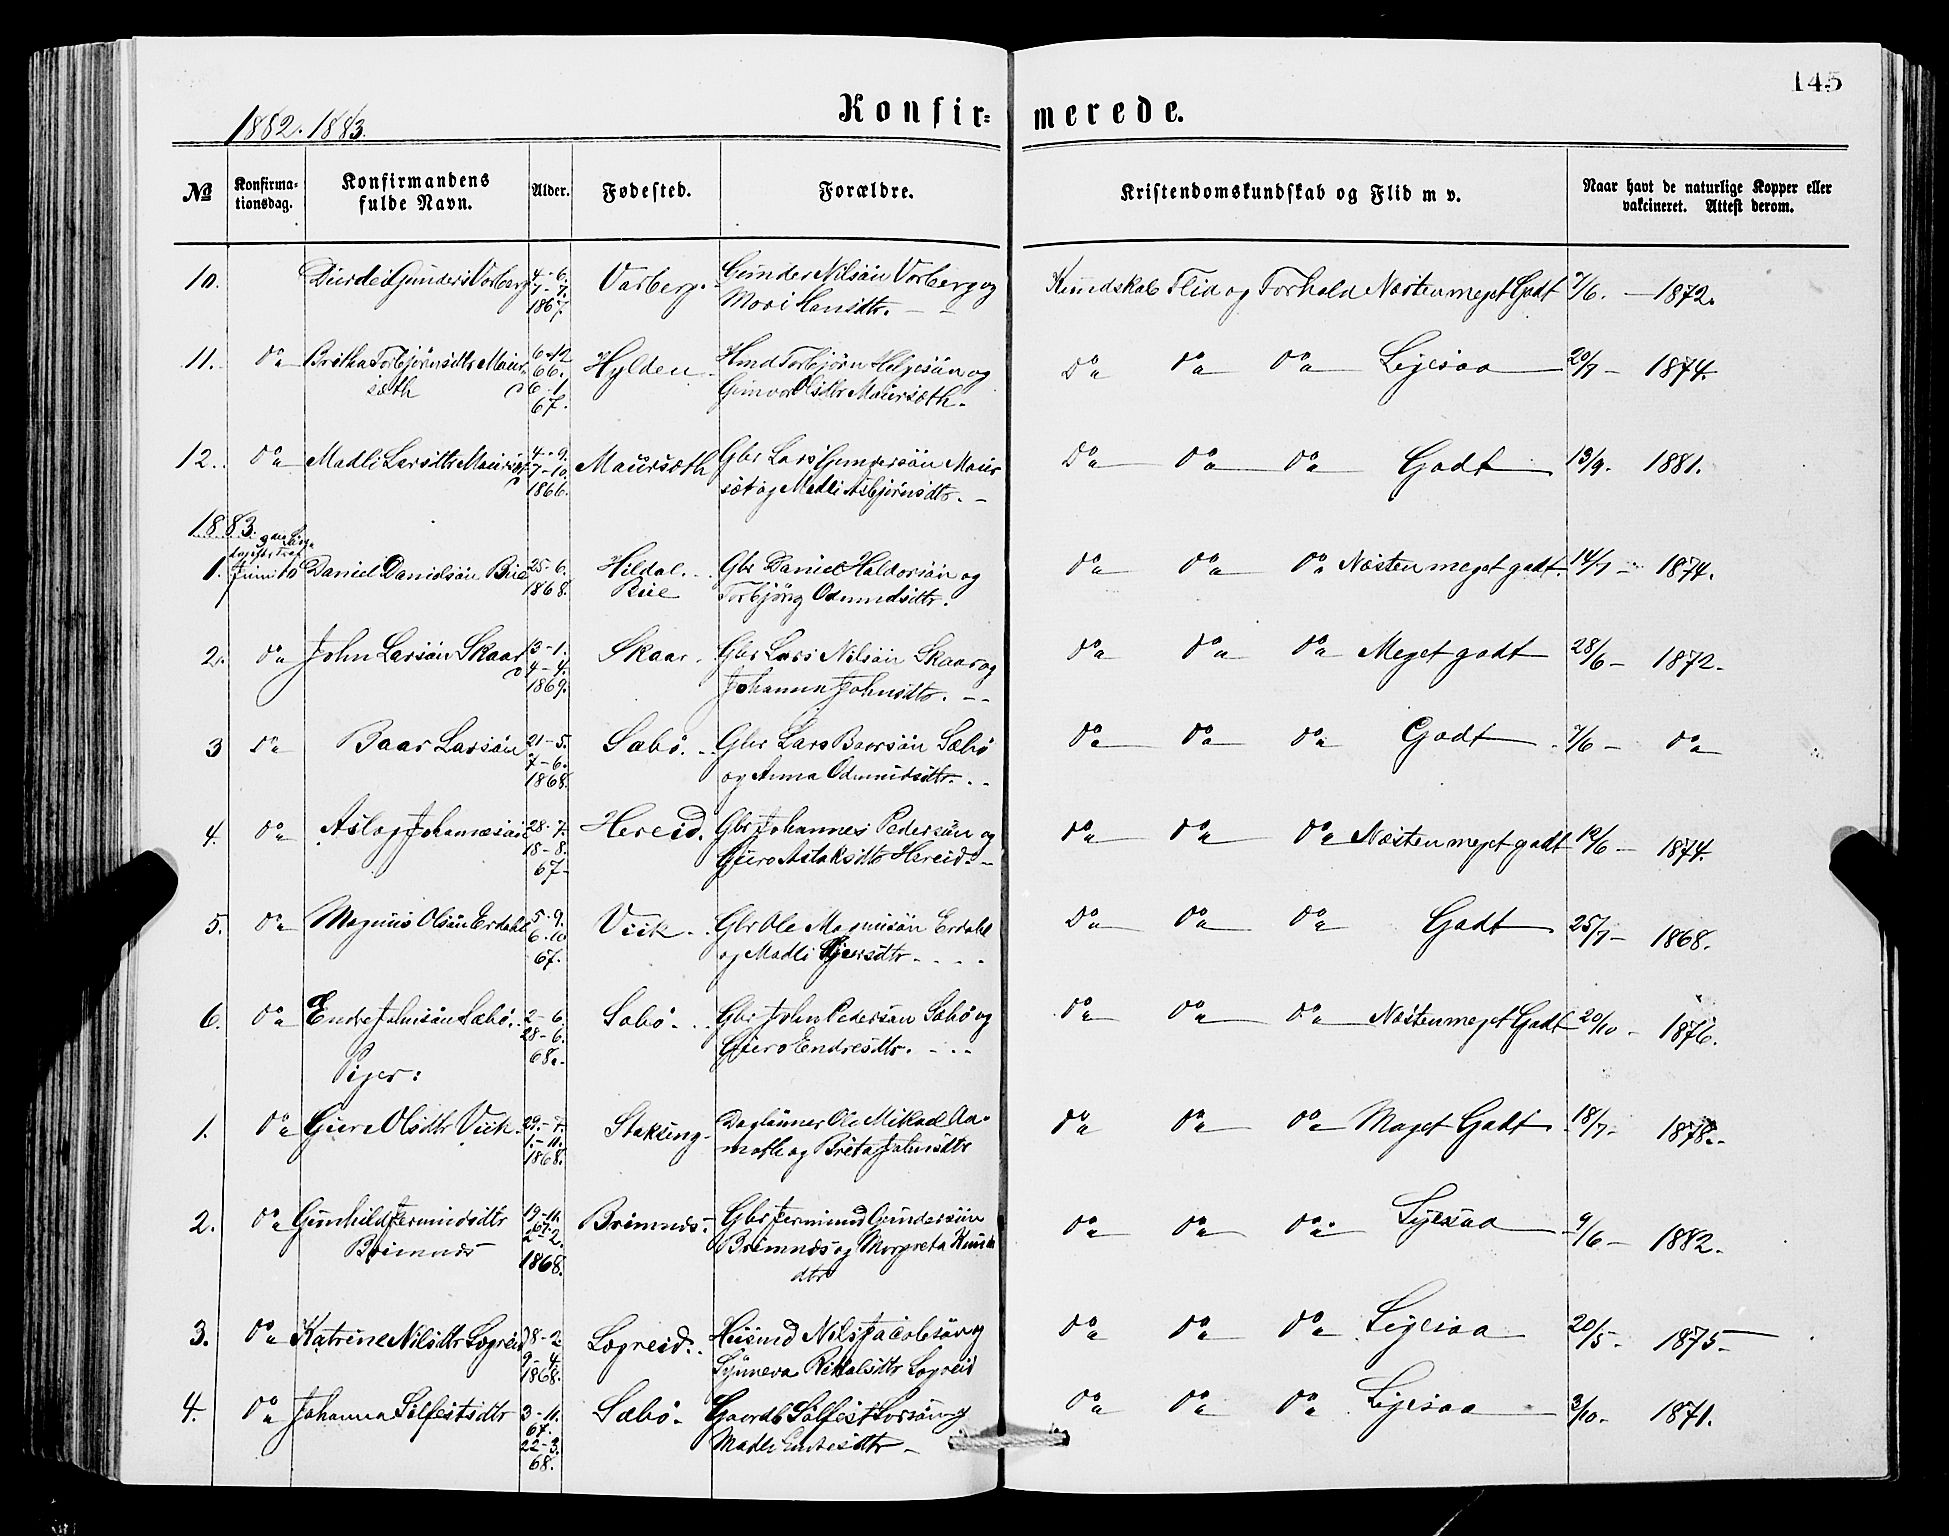 145
1882. 1883.
Konfir= merede.
№
Konfirma-
tionsdag.
Konfirmandens
fulde Navn.
Alder.
Fødested.
Forældre.
Kristendomskundskab og Flid m v.
Naar havt de naturlige Kopper eller
vakcineret. Attest derom.
10. Gunders Vorberg 4-6. Varberg. Gunder Nilsön Vorberg og Kundskab Flid og Forhold Næsten meget Godt 7/6. — 1872.
7-7. Hansdtr.
1867.
11. Do Britha Torbjörnsdtr Maur 6-12 Hylden Hmd Torbjörn Helgesön og Do Do Do Ligesaa 20/7 — 1874.
sæth 66. Gunvor Olsdtr Maursæth.
6-1
67.
12. Do Madli Larsdtr Maursæt 4-9. Maursæth Gbr Lars Gundersön Maur Do Do Do Godt 13/9. 1881.
7-10 sæt og Madli Asbjörnsdtr.
1866.
1883.
1. Juni 10 Daniel Danielsön Bue 25-6. Hildal. Gbr Daniel Haldorsön og Do Do Do Næsten meget godt. 14/7 — 1874.
1868. Bue Torbjörg Odmundsdtr.
2. Do John Larsön Skaar 13-1. Skaar. Gbr Lars Nilsön Skaar og Do Do Do Meget godt 28/6 — 1872.
4-4. Johanna Johnsdtr.
1869.
3 Do Baar Larsön 21-5. Sæbö. Gbr Lars Baarsön Sæbö Do Do Do Godt 7/6 — Do
7-6. og Anna Odmundsdtr.
1868.
4. Do Aslag Johannesön 28-7. Hereid. Gbr Johannes Pedersön og Do Do Do Næsten meget godt 12/6 — 1874.
18-8. Guro Aslaksdtr Hereid.
67.
5. Do Magnus Olsön Erdahl 5-9. Viik. Gbr Ole Magnusön Erdahl Do Do Do Godt 25/7 — 1868.
6-10 og Madli
67.
6. Do Endre Johnsön Sæbö. 2-6. Sæbö. Gbr John Pedersön Sæbö og Do Do Do Næsten meget Godt 20/10 — 1876.
28-6. Guro Endresdtr.
68.
Piger:
1. Do Guro Olsdtr Viik. 29- Do Do Do Meget Godt 18/7 — 1878.
1-11. og Brita Johnsdtr
1868.
2. Do Gunhild Jermundsdtr 19-11. Brimnæs. Gbr Jermund Gundersön Do Do Do Ligesaa 9/6 — 1882.
Brimnæs 67. Brimnæs og Margreta Knuts
2-2. dtr
1868.
3. Do Katrine Nilsdtr Legreid 8-2. Legreid. Husmd Nils Jacobsön og Do Do Do Ligesaa 20/5 — 1875
9-4. Synneva Legreid
1868.
4. Do Johanna Sölfestsdtr 3-11. Sæbö. Gaardb Sölfest Larsön og Do Do Do Ligesaa 3/10. 1871.
67. Madli
22-3.
68.